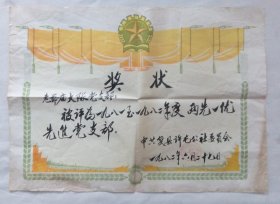 奖状
大队党支部
被评为一九八一至一九八二年度两先一优
先进党支部.
中共冀县许屯公社委员会
一九八二年六月二十九日